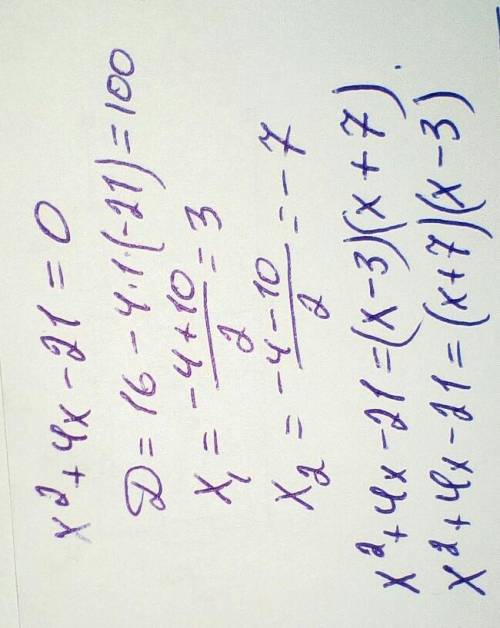 x² + 4x - 21 = 0
D = 16 - 4·1·(-21) = 100
x₁ = (-4 + 10)/2 = 3
x₂ = (-4 - 10)/2 = -7
x² + 4x - 21 = (x - 3)(x + 7).
x² + 4x - 21 = (x + 7)(x - 3)